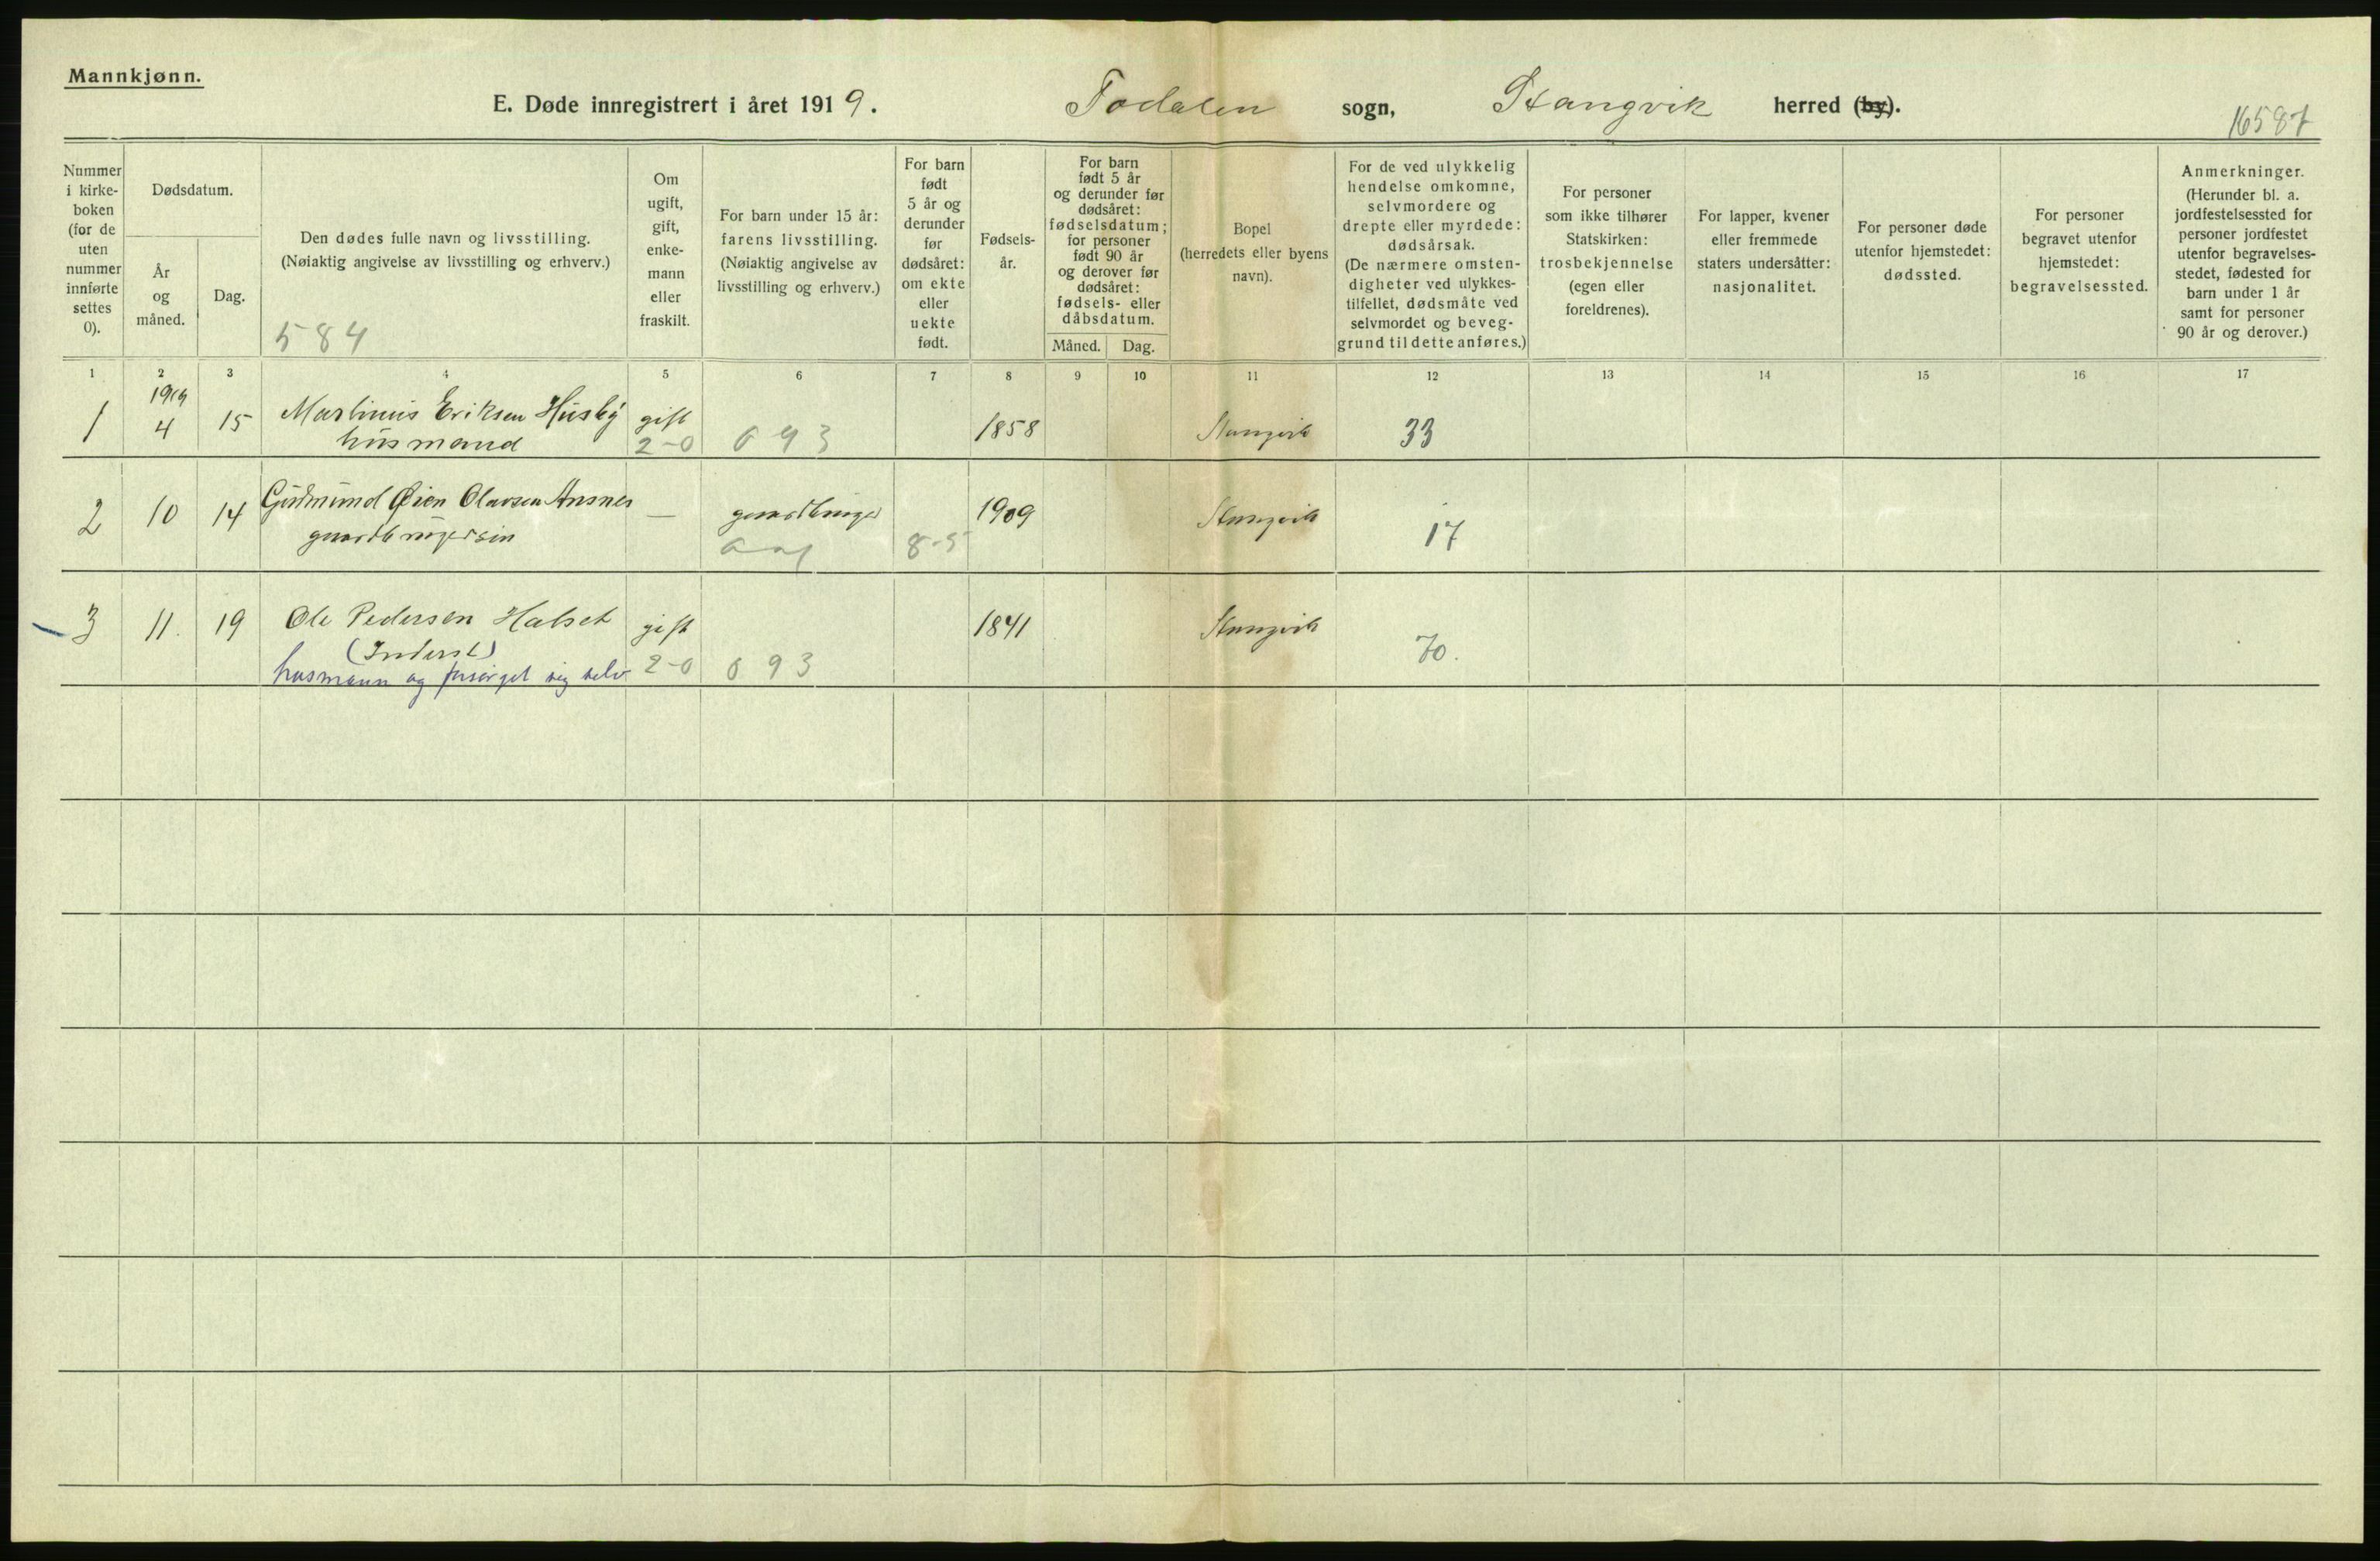 Mannkjønn.
E. Døde innregistrert i året 1919. Todalen sogn, Stangvik herred (by).
16587
Nummer i kirke- boken (for de uten nummer innførte settes 0).
Dødsdatum.
År og måned.
Dag.
Den dødes fulle navn og livsstilling.
(Nøiaktig angivelse av livsstilling og erhverv.)
584
Om ugift, gift, enke- mann eller fraskilt.
For barn under 15 år: farens livsstilling. (Nøiaktig angivelse av livsstilling og erhverv.)
For barn født 5 år og derunder før dødsåret: om ekte eller uekte født.
Fødsels- år.
For barn født 5 år og derunder før dødsåret: fødselsdatum; for personer født 90 år og derover før dødsåret: fødsels- eller dåbsdatum.
Måned. Dag.
Bopel (herredets eller byens navn).
For de ved ulykkelig hendelse omkomne, selvmordere og drepte eller myrdede: dødsårsak. (De nærmere omsten- digheter ved ulykkes- tilfellet, dødsmåte ved selvmordet og beveg- grund til dette anføres.)
For personer som ikke tilhører Statskirken: trosbekjennelse (egen eller foreldrenes).
For lapper, kvener eller fremmede staters undersåtter: nasjonalitet.
For personer døde utenfor hjemstedet: dødssted.
For personer begravet utenfor hjemstedet: begravelsessted.
Anmerkninger. (Herunder bl. a. jordfestelsessted for personer jordfestet utenfor begravelses- stedet, fødested for barn under 1 år samt for personer 90 år og derover.)
1 2 3 4 5 6 7 8 9 10 11 12 13 14 15 16 17
1919
1 4 15 Martinus Eriksen Husby gift 1858 Stangvik 33
husmand 2-0 693
2 10 14 Gudmund Øien Olavsen Ansnes — gaardbruger 1909 Stangvik 17
gaardbrugersøn 8-5
3 11. 19 Ole Pedersen Halset gift 1841 Stangvik 70.
(Inderst)
husmann og forsørget sig selv 2-0 693